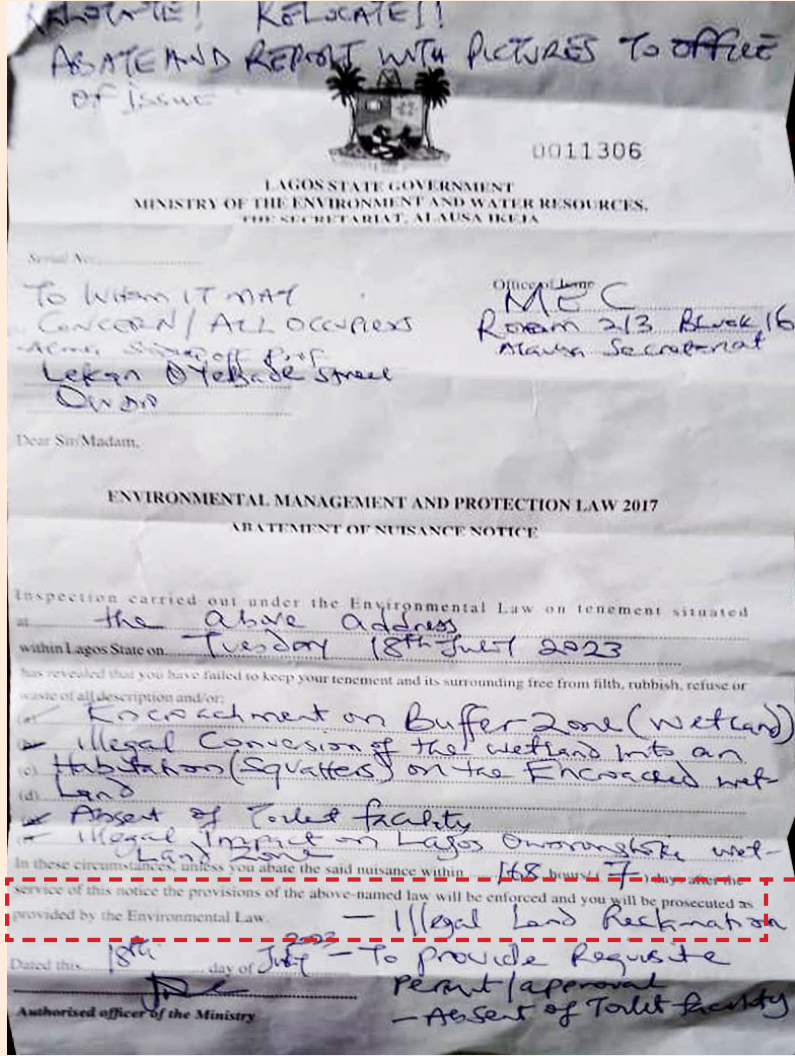 RELOCATE! RELOCATE!!
ABATE AND REPORT WITH PICTURES TO OFFICE
OF ISSUE
0011306
LAGOS STATE GOVERNMENT
MINISTRY OF THE ENVIRONMENT AND WATER RESOURCES,
THE SECRETARIAT, ALAUSA IKEJA
Serial No
Office of Issue
TO WHOM IT MAY
CONCERN / ALL OCCUPIERS
Lekan Oyebade Street
MEC
Room 213 Block 16
Alausa Secretariat
Dear Sir/Madam,
ENVIRONMENTAL MANAGEMENT AND PROTECTION LAW 2017
ABATEMENT OF NUISANCE NOTICE
Inspection carried out under the Environmental Law on tenement situated
at the above address
within Lagos State on Tuesday 18th July 2023
has revealed that you have failed to keep your tenement and its surrounding free from filth, rubbish, refuse or
waste of all description and/or;
Encroachment on Buffer Zone (Wetland)
Illegal Convesion of the wetland into an
(c) Habitation (Squatters) on the Encroached wet-
(d) Land
Absent of Toilet facility
Illegal Impact on Lagos Oworonshoki wet-
Land Zone
In these circumstances, unless you abate the said nuisance within 168 hours/(7) days after the
service of this notice the provisions of the above-named law will be enforced and you will be prosecuted as
provided by the Environmental Law. — Illegal Land Reclamation
Dated this 18th day of July 2023 – To provide Requisite
Permit/approval
– Absent of Toilet facility
Authorised officer of the Ministry